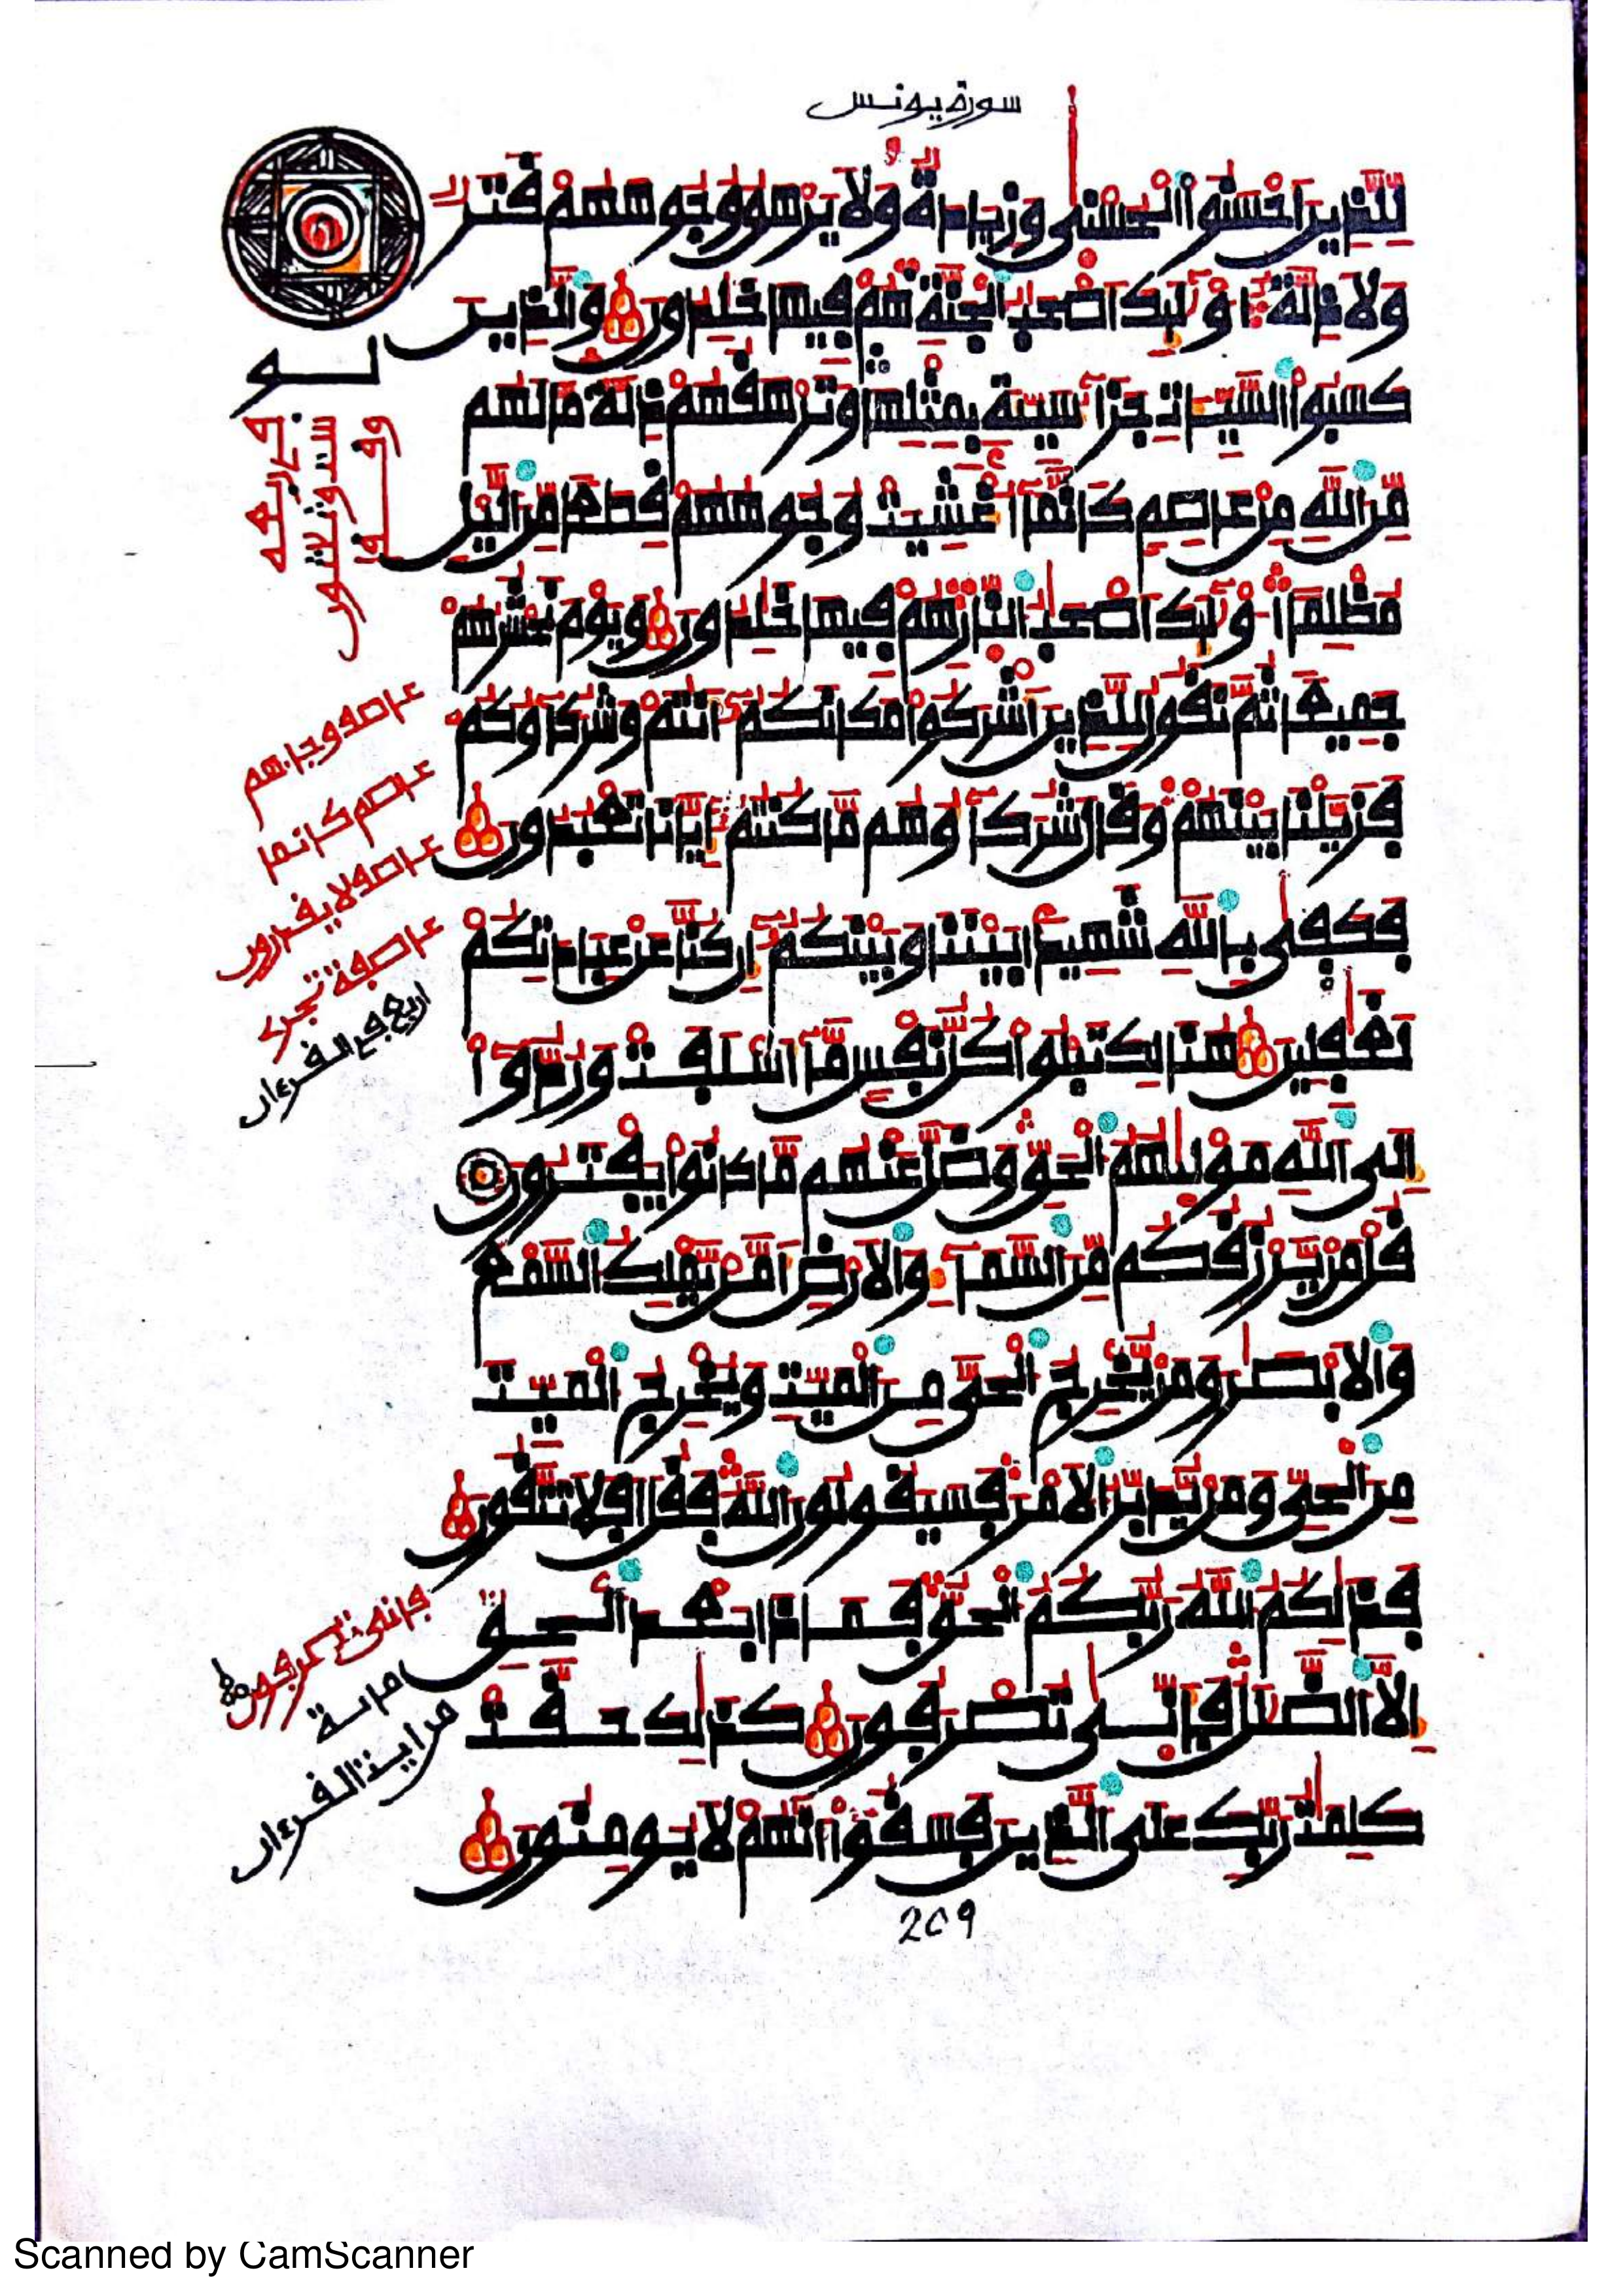 سورة يونس
لِّلَّذِينَ أَحْسَنُوا الْحُسْنَىٰ وَزِيَادَةٌ وَلَا يَرْهَقُ وُجُوهَهُمْ قَتَرٌ
وَلَا ذِلَّةٌ أُوْلَٰئِكَ أَصْحَٰبُ الْجَنَّةِ هُمْ فِيهَا خَٰلِدُونَ وَالَّذِينَ
كَسَبُوا السَّيِّـَٔاتِ جَزَآءُ سَيِّئَةٍ بِمِثْلِهَا وَتَرْهَقُهُمْ ذِلَّةٌ مَّا لَهُم
مِّنَ اللَّهِ مِنْ عَاصِمٍ كَأَنَّمَآ أُغْشِيَتْ وُجُوهُهُمْ قِطَعًا مِّنَ الَّيْلِ
مُظْلِمًا أُوْلَٰئِكَ أَصْحَٰبُ النَّارِ هُمْ فِيهَا خَٰلِدُونَ وَيَوْمَ نَحْشُرُهُمْ
جَمِيعًا ثُمَّ نَقُولُ لِلَّذِينَ أَشْرَكُوا مَكَانَكُمْ أَنتُمْ وَشُرَكَآؤُكُمْ
فَزَيَّلْنَا بَيْنَهُمْ وَقَالَ شُرَكَآؤُهُم مَّا كُنتُمْ إِيَّانَا تَعْبُدُونَ
فَكَفَىٰ بِاللَّهِ شَهِيدًا بَيْنَنَا وَبَيْنَكُمْ إِن كُنَّا عَنْ عِبَادَتِكُمْ
لَغَٰفِلِينَ هُنَالِكَ تَبْلُوا كُلُّ نَفْسٍ مَّآ أَسْلَفَتْ وَرُدُّوا
إِلَى اللَّهِ مَوْلَىٰهُمُ الْحَقِّ وَضَلَّ عَنْهُم مَّا كَانُوا يَفْتَرُونَ
قُلْ مَن يَرْزُقُكُم مِّنَ السَّمَآءِ وَالْأَرْضِ أَمَّن يَمْلِكُ السَّمْعَ
وَالْأَبْصَٰرَ وَمَن يُخْرِجُ الْحَيَّ مِنَ الْمَيِّتِ وَيُخْرِجُ الْمَيِّتَ
مِنَ الْحَيِّ وَمَن يُدَبِّرُ الْأَمْرَ فَسَيَقُولُونَ اللَّهُ فَقُلْ أَفَلَا تَتَّقُونَ
فَذَٰلِكُمُ اللَّهُ رَبُّكُمُ الْحَقُّ فَمَاذَا بَعْدَ الْحَقِّ
إِلَّا الضَّلَٰلُ فَأَنَّىٰ تُصْرَفُونَ كَذَٰلِكَ حَقَّتْ
كَلِمَٰتُ رَبِّكَ عَلَى الَّذِينَ فَسَقُوا أَنَّهُمْ لَا يُومِنُونَ
عاصم كانما
اربع في القرءان
209
Scanned by CamScanner